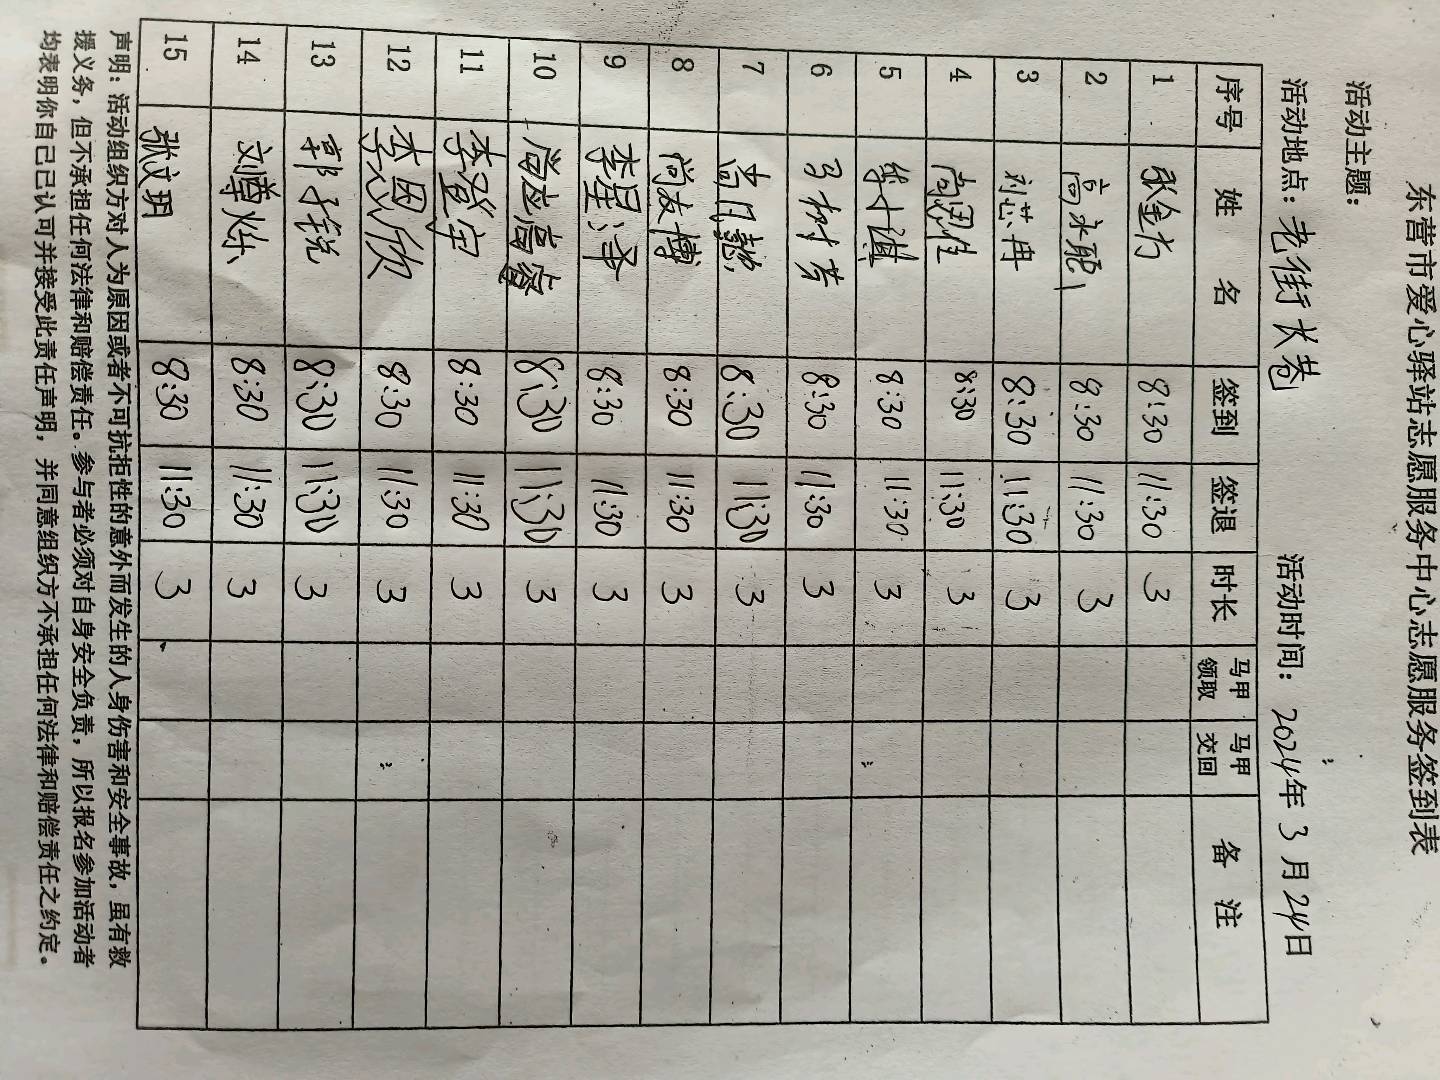 东营市爱心驿站志愿服务中心志愿服务签到表
活动主题：
活动地点：老街长巷 活动时间：2024年3月24日
序号 姓名 签到 签退 时长 马甲领取 马甲交回 备注
1 8:30 11:30 3
2 高永聪 8:30 11:30 3
3 刘芯冉 8:30 11:30 3
4 8:30 11:30 3
5 8:30 11:30 3
6 8:30 11:30 3
7 8:30 11:30 3
8 尚友博 8:30 11:30 3
9 李星泽 8:30 11:30 3
10 8:30 11:30 3
11 李登宇 8:30 11:30 3
12 李恩欣 8:30 11:30 3
13 郭子锐 8:30 11:30 3
14 刘尊烁 8:30 11:30 3
15 张文玥 8:30 11:30 3
声明：活动组织方对人为原因或者不可抗拒性的意外而发生的人身伤害和安全事故，虽有救
援义务，但不承担任何法律和赔偿责任。参与者必须对自身安全负责，所以报名参加活动者
均表明你自己已认可并接受此责任声明，并同意组织方不承担任何法律和赔偿责任之约定。